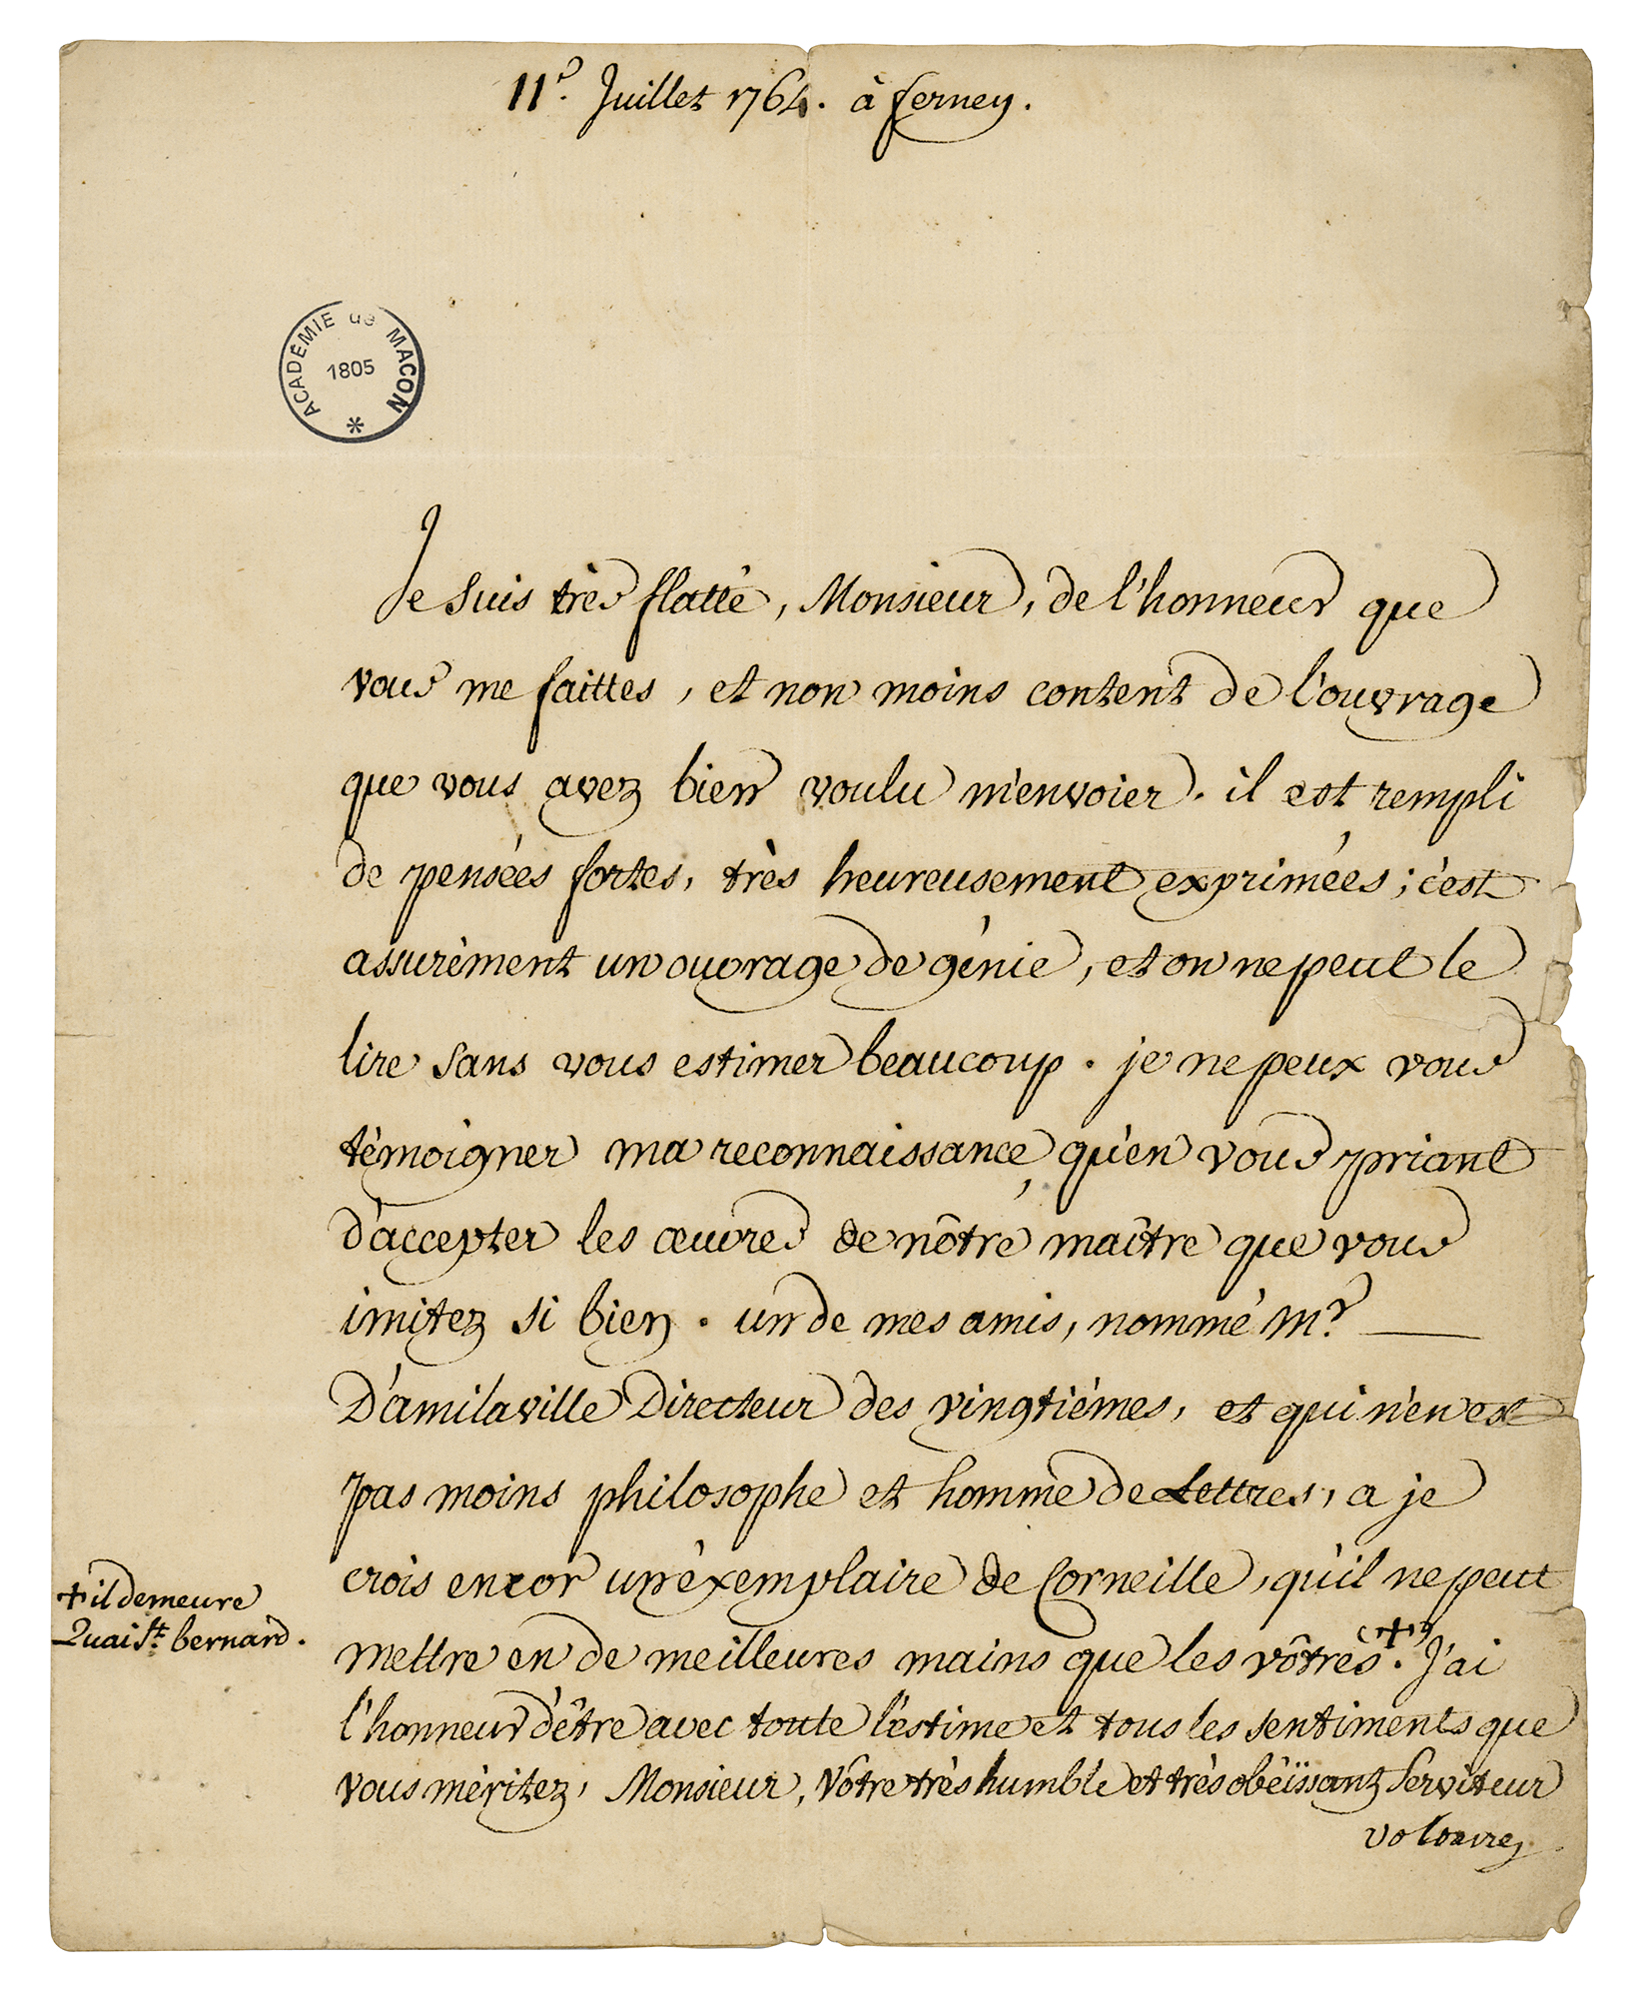 11e. Juillet 1764. à ferney.
ACADÉMIE de MACON
1805
*
Je suis très flatté, Monsieur, de l'honneur que
vous me faittes, et non moins content de l'ouvrage
que vous avez bien voulu m'envoier. il est rempli
de pensées fortes, très heureusement exprimées; c'est
assurément un ouvrage de génie, et on ne peut le
lire sans vous estimer beaucoup. je ne peux vous
témoigner ma reconnaissance qu'en vous priant
d'accepter les œuvres de nôtre maître que vous
imitez si bien. un de mes amis, nommé Mr.
D'amilaville Directeur des vingtiémes, et qui n'en est
pas moins philosophe et homme de Lettres, a je
crois encor un éxemplaire de Corneille, qu'il ne peut
mettre en de meilleures mains que les vôtres (+). J'ai
l'honneur d'être avec toute l'estime et tous les sentiments que
vous méritez, Monsieur, Vôtre très humble et très obéïssant Serviteur
voltaire
+ il demeure
Quai St. bernard.